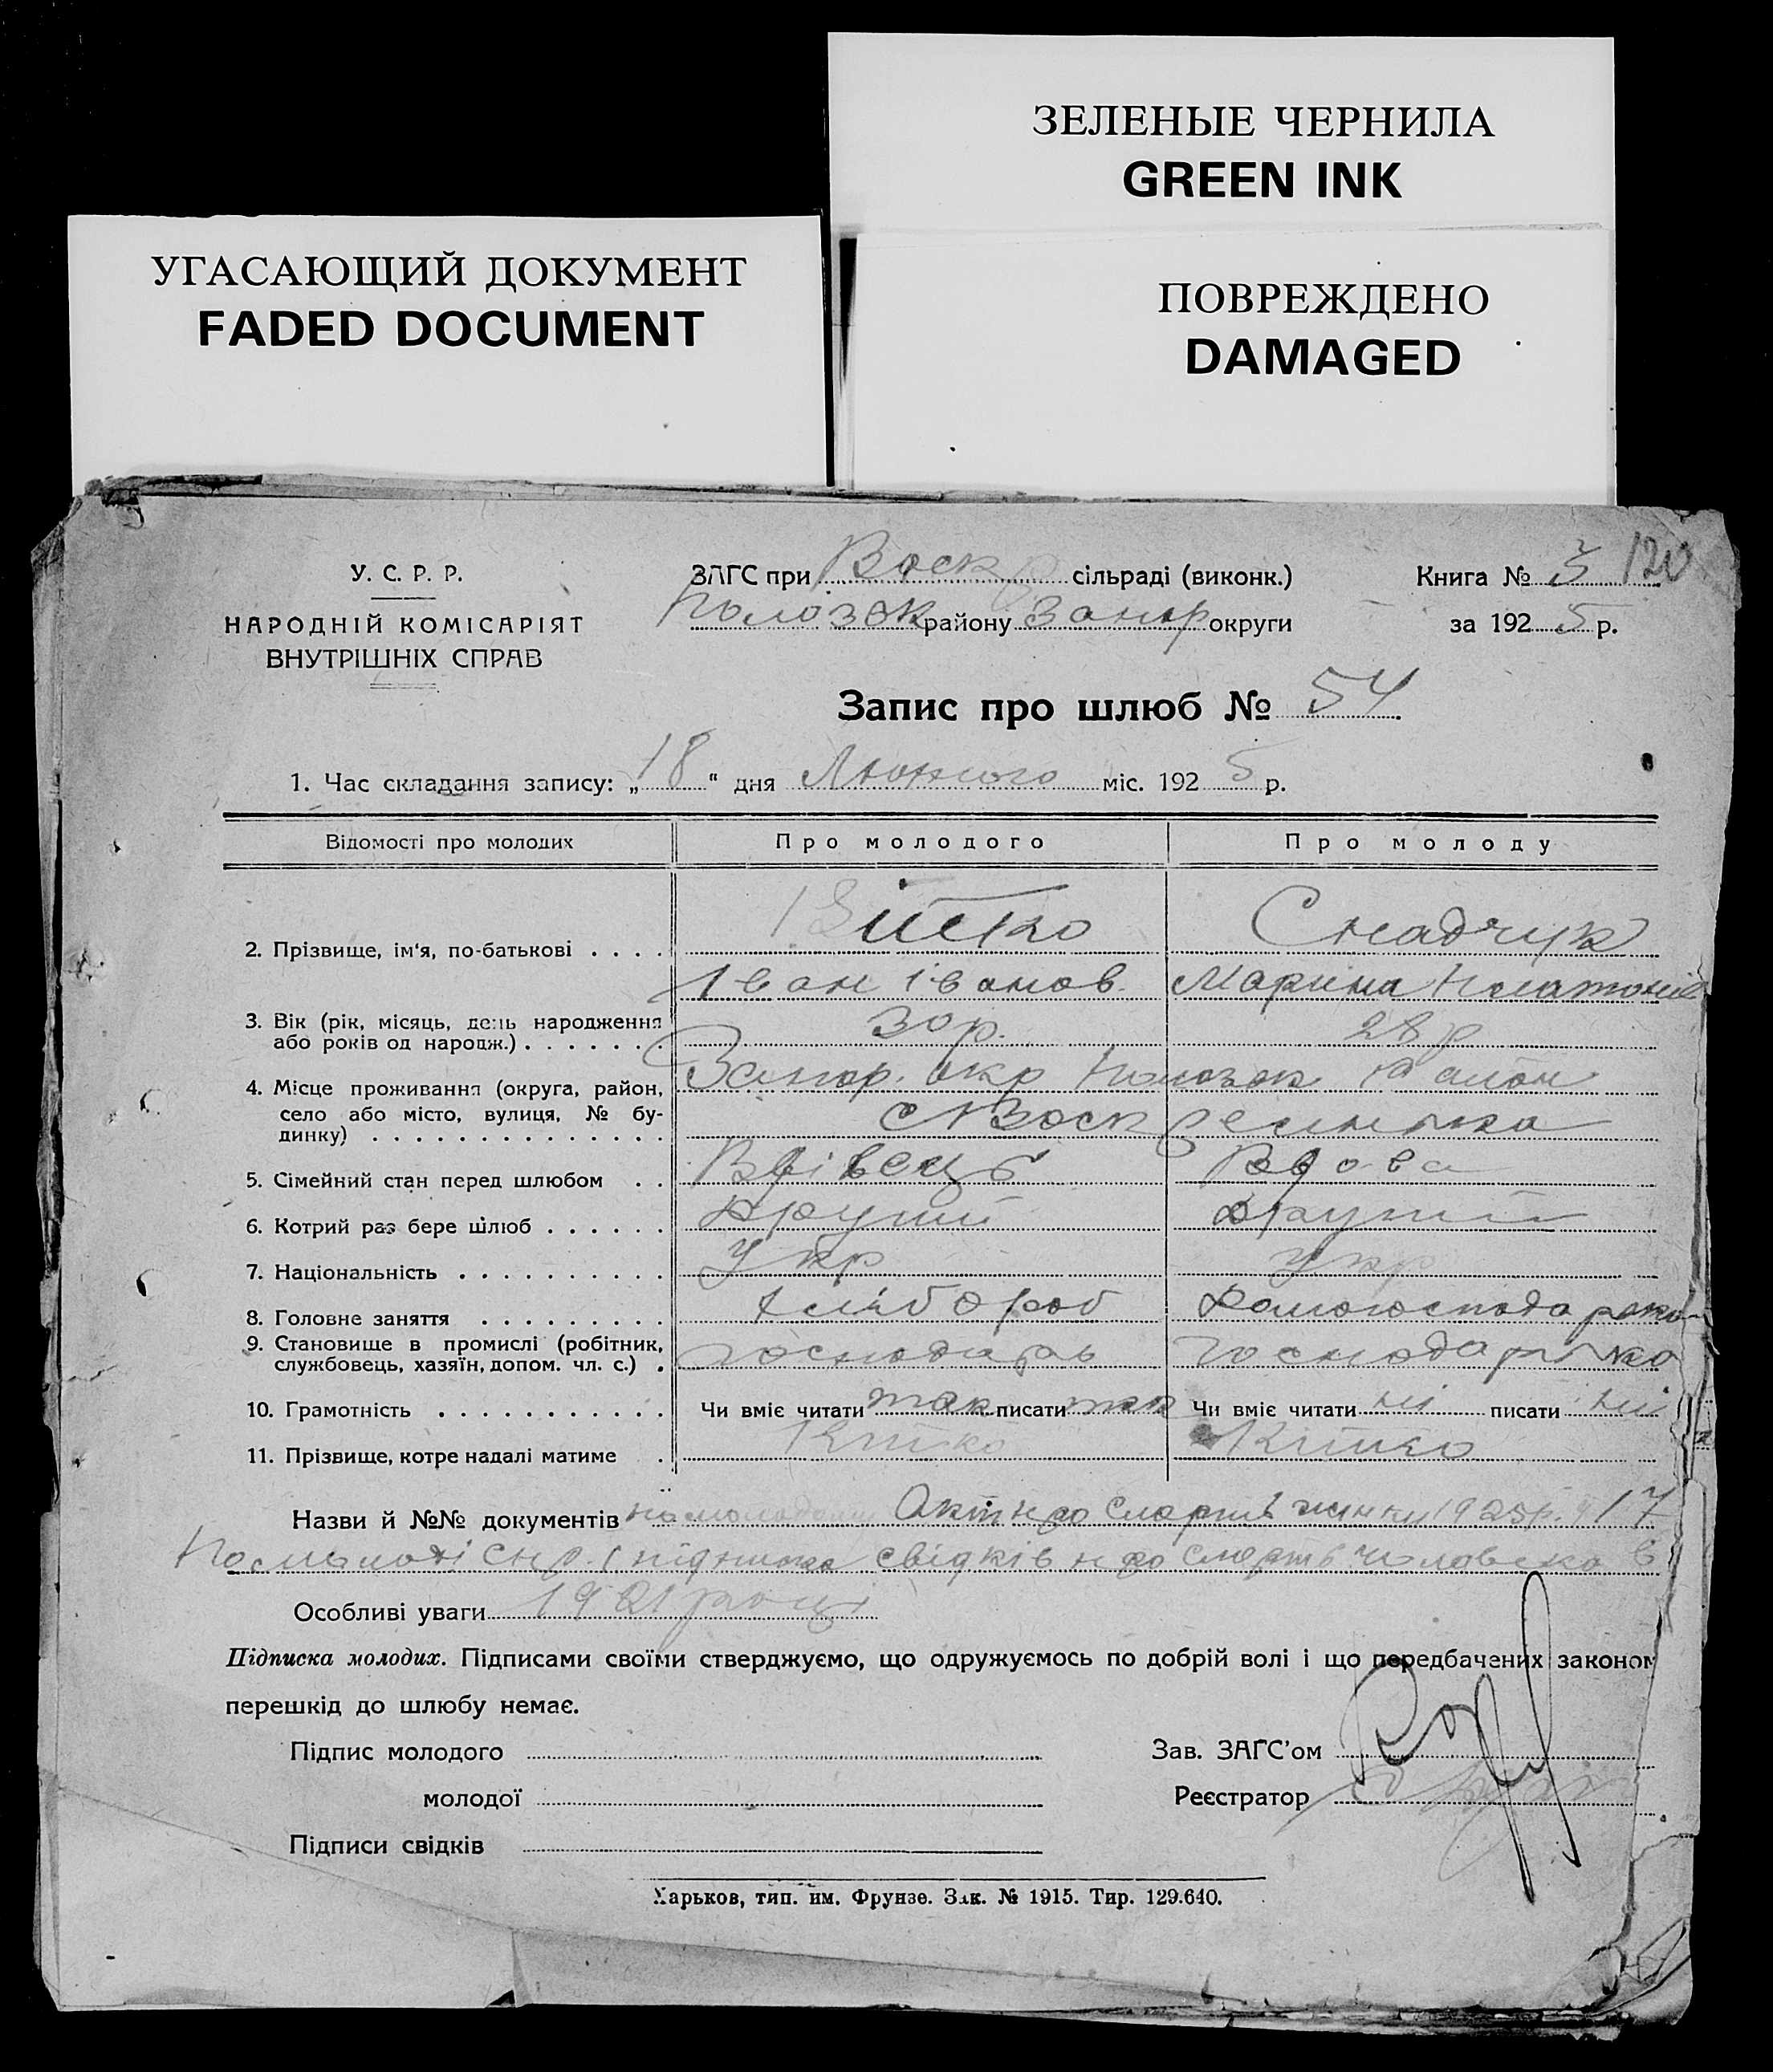 ЗЕЛЕНЫЕ ЧЕРНИЛА
GREEN INK
УГАСАЮЩИЙ ДОКУМЕНТ
FADED DOCUMENT
ПОВРЕЖДЕНО
DAMAGED
У. С. Р. Р.
НАРОДНІЙ КОМІСАРІЯТ
ВНУТРІШНІХ СПРАВ
ЗАГС при Воскр сільраді (виконк.)
Полозок району Запор округи
Книга № 3 120
за 192 5 р.
Запис про шлюб № 54
1. Час складання запису: „ 18 “ дня Лютого міс. 192 5 р.
Відомості про молодих Про молодого Про молоду
2. Прізвище, ім‘я, по-батькові . . . .
Іван Іванов. Марина
3. Вік (рік, місяць, день народження 30 р. 28 р
або років од народж.) . . . . . . .
4. Місце проживання (округа, район, Запор. окр Полозок Район
село або місто, вулиця, № бу-
динку) . . . . . . . . . . . . . . с Воскресенька
5. Сімейний стан перед шлюбом . . Вдівець Вдова
6. Котрий раз бере шлюб . . . . . . другий другий
7. Національність . . . . . . . . . . Укр Укр
8. Головне заняття . . . . . . . . . хлібороб
9. Становище в промислі (робітник,
службовець, хазяїн, допом. чл. с.) . господарь господарька
10. Грамотність . . . . . . . . . . . Чи вміє читати так писати так Чи вміє читати ні писати ні
11. Прізвище, котре надалі матиме . Китко Китко
Назви й №№ документів Акт про смерть жинки 1925 р. 17
підписка свідків про смерть чоловека в
Особливі уваги 1921 році
Підписка молодих. Підписами своїми стверджуємо, що одружуємось по добрій волі і що передбачених законом
перешкід до шлюбу немає.
Підпис молодого
Зав. ЗАГС’ом
молодої
Реєстратор
Підписи свідків
Харьков, тип. им. Фрунзе. Зак. № 1915. Тир. 129.640.